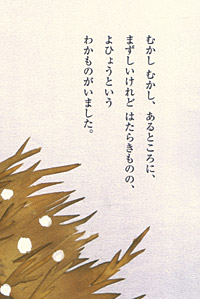 むかし むかし、あるところに、
まずしいけれど はたらきものの、
よひょうという
わかものがいました。